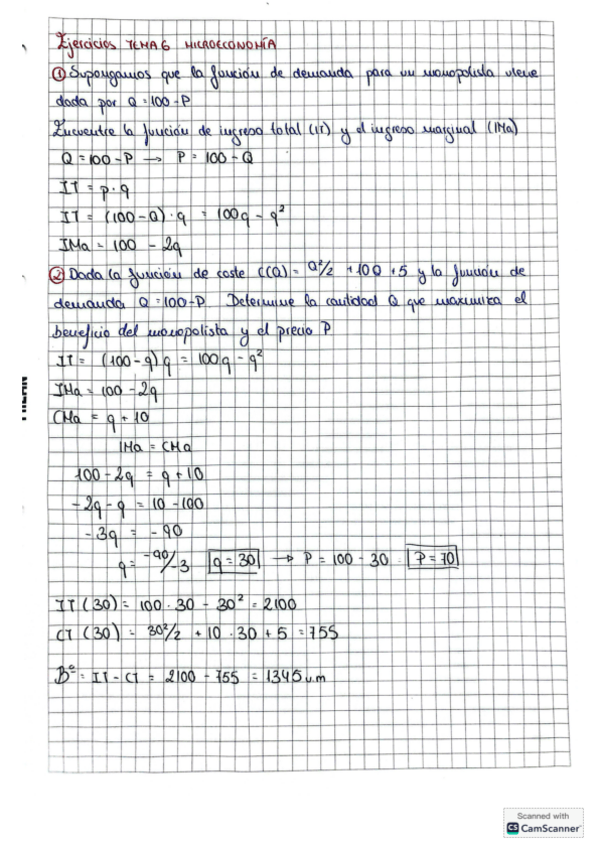 Ejercicios TEMA 6 MICROECONOMÍA
① Supongamos que la función de demanda para un monopolista viene
dada por Q = 100 - P
Encuentre la función de ingreso total (IT) y el ingreso marginal (IMa)
Q = 100 - P → P = 100 - Q
IT = p · q
IT = (100 - Q) · q = 100q - q²
IMa = 100 - 2q
② Dada la función de coste C(Q) = Q²/2 + 10Q + 5 y la función de
demanda Q = 100 - P. Determine la cantidad Q que maximiza el
beneficio del monopolista y el precio P
IT = (100 - q) q = 100q - q²
IMa = 100 - 2q
CMa = q + 10
IMa = CMa
100 - 2q = q + 10
-2q - q = 10 - 100
-3q = -90
q = -90/-3 q = 30 → P = 100 - 30 P = 70
IT (30) = 100 · 30 - 30² = 2100
CT (30) = 30²/2 + 10 · 30 + 5 = 755
Bº = IT - CT = 2100 - 755 = 1345 u.m
Scanned with
CS CamScanner